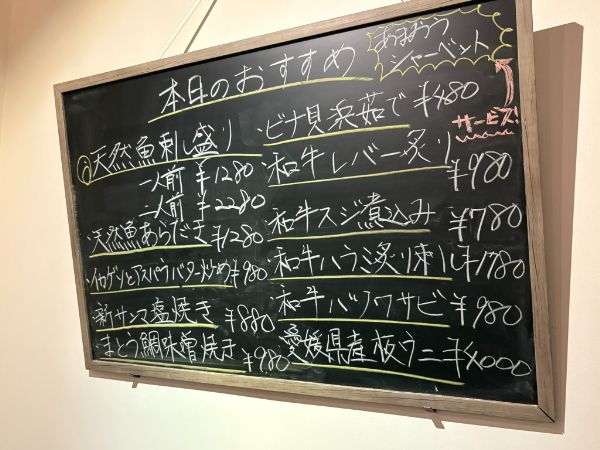 本日のおすすめ
あまおう
シャーベット
サービス!
・天然魚刺し盛り
一人前 ¥1280
二人前 ¥2280
・天然魚あらだき ¥1280
・イカゲソとアスパラバター炒め ¥980
・新サンマ塩焼き ¥880
・まとう鯛味噌焼き ¥980
・ビナ貝浜茹で ¥480
・和牛レバー炙り ¥980
・和牛スジ煮込み ¥780
・和牛ハラミ炙り刺し ¥1780
・和牛ハツワサビ ¥980
・愛媛県産板ウニ